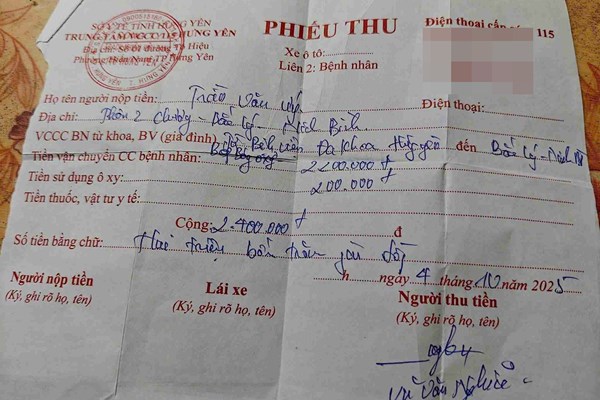 SỞ Y TẾ TỈNH HƯNG YÊN
TRUNG TÂM VCCC 115 HƯNG YÊN
Địa chỉ: Số 01 đường Tp Hiệu
Phường Hiến Nam, TP Hưng Yên
PHIẾU THU
Xe ô tô:
Liên 2: Bệnh nhân
Điện thoại cấp 115
Họ tên người nộp tiền: Trần Văn
Điện thoại:
Địa chỉ: Thôn 2 Lý - Ninh Bình
VCCC BN từ khoa, BV (giá đình) Bệnh viện Đa khoa đến Bắc Lý - Ninh
Tiền vận chuyển CC bệnh nhân: 2200.000 đ
Tiền sử dụng ô xy: 200.000 đ
Tiền thuốc, vật tư y tế:
Cộng: 2.400.000 đ đ
Số tiền bằng chữ: Hai triệu bốn trăm đồng
h ngày 4 tháng 10 năm 2025
Người nộp tiền
(Ký, ghi rõ họ, tên)
Lái xe
(Ký, ghi rõ họ, tên)
Người thu tiền
(Ký, ghi rõ họ, tên)
Vũ Văn